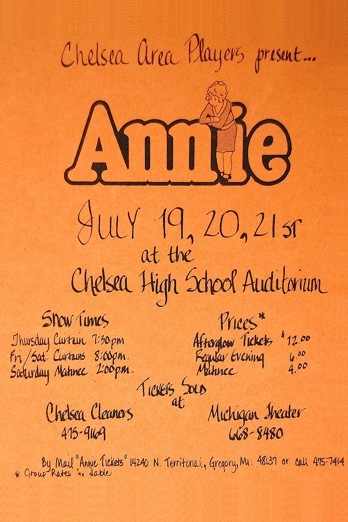 Chelsea Area Players present...
Annie
JULY 19, 20, 21ST
at the
Chelsea High School Auditorium
Show Times
Thursday Curtain 7:30pm
Fri/Sat Curtains 8:00pm.
Saturday Matinee 2:00pm.
Prices*
Afterglow Tickets $12.00
Regular Evening 6.00
Matinee 4.00
Tickets Sold
at
Chelsea Cleaners
475-9169
Michigan Theater
668-8480
By Mail "Annie Tickets" 14240 N. Territorial, Gregory, Mi. 48137 or call 475-7414
* Group Rates